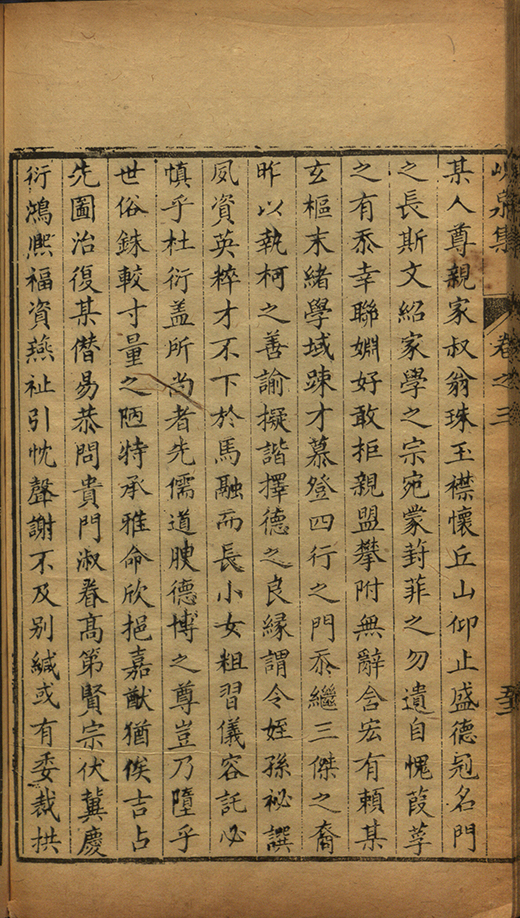 峴泉集 卷之三
某人尊親家叔翁珠玉襟懷丘山仰止盛德冠名門
之長斯文紹家學之宗宛蒙葑菲之勿遺自愧葭莩
之有忝幸聯婣好敢拒親盟攀附無辭含宏有賴某
玄樞末緒學域踈才慕登四行之門忝繼三傑之裔
昨以執柯之善諭擬諧擇德之良緣謂令姪孫祕譔
夙資英粹才不下於馬融而長小女粗習儀容託必
慎乎杜衍盖所尚者先儒道腴德博之尊豈乃墮乎
世俗銖較寸量之陋特承雅命欣挹嘉猷猶俟吉占
先圖治復某僣易恭問貴門淑眷髙第賢宗伏冀慶
衍鴻熈福資燕祉引忱聲謝不及别緘或有委裁拱